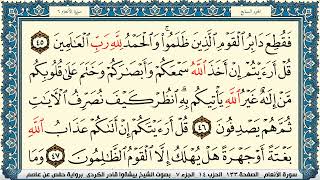 الجزء السابع
سورة الأنعام ٦
فَقُطِعَ دَابِرُ الْقَوْمِ الَّذِينَ ظَلَمُوا وَالْحَمْدُ لِلَّهِ رَبِّ الْعَالَمِينَ ٤٥
قُلْ أَرَءَيْتُمْ إِنْ أَخَذَ اللَّهُ سَمْعَكُمْ وَأَبْصَارَكُمْ وَخَتَمَ عَلَى قُلُوبِكُمْ
مَنْ إِلَهٌ غَيْرُ اللَّهِ يَأْتِيكُمْ بِهِ انْظُرْ كَيْفَ نُصَرِّفُ الْآيَاتِ
ثُمَّ هُمْ يَصْدِفُونَ ٤٦ قُلْ أَرَءَيْتَكُمْ إِنْ أَتَاكُمْ عَذَابُ اللَّهِ
بَغْتَةً أَوْ جَهْرَةً هَلْ يُهْلَكُ إِلَّا الْقَوْمُ الظَّالِمُونَ ٤٧ وَمَا
سورة الأنعام الصفحة ١٣٣ الحزب ١٤ الجزء ٧ بصوت الشيخ بيشةوا قادر الكردي برواية حفص عن عاصم